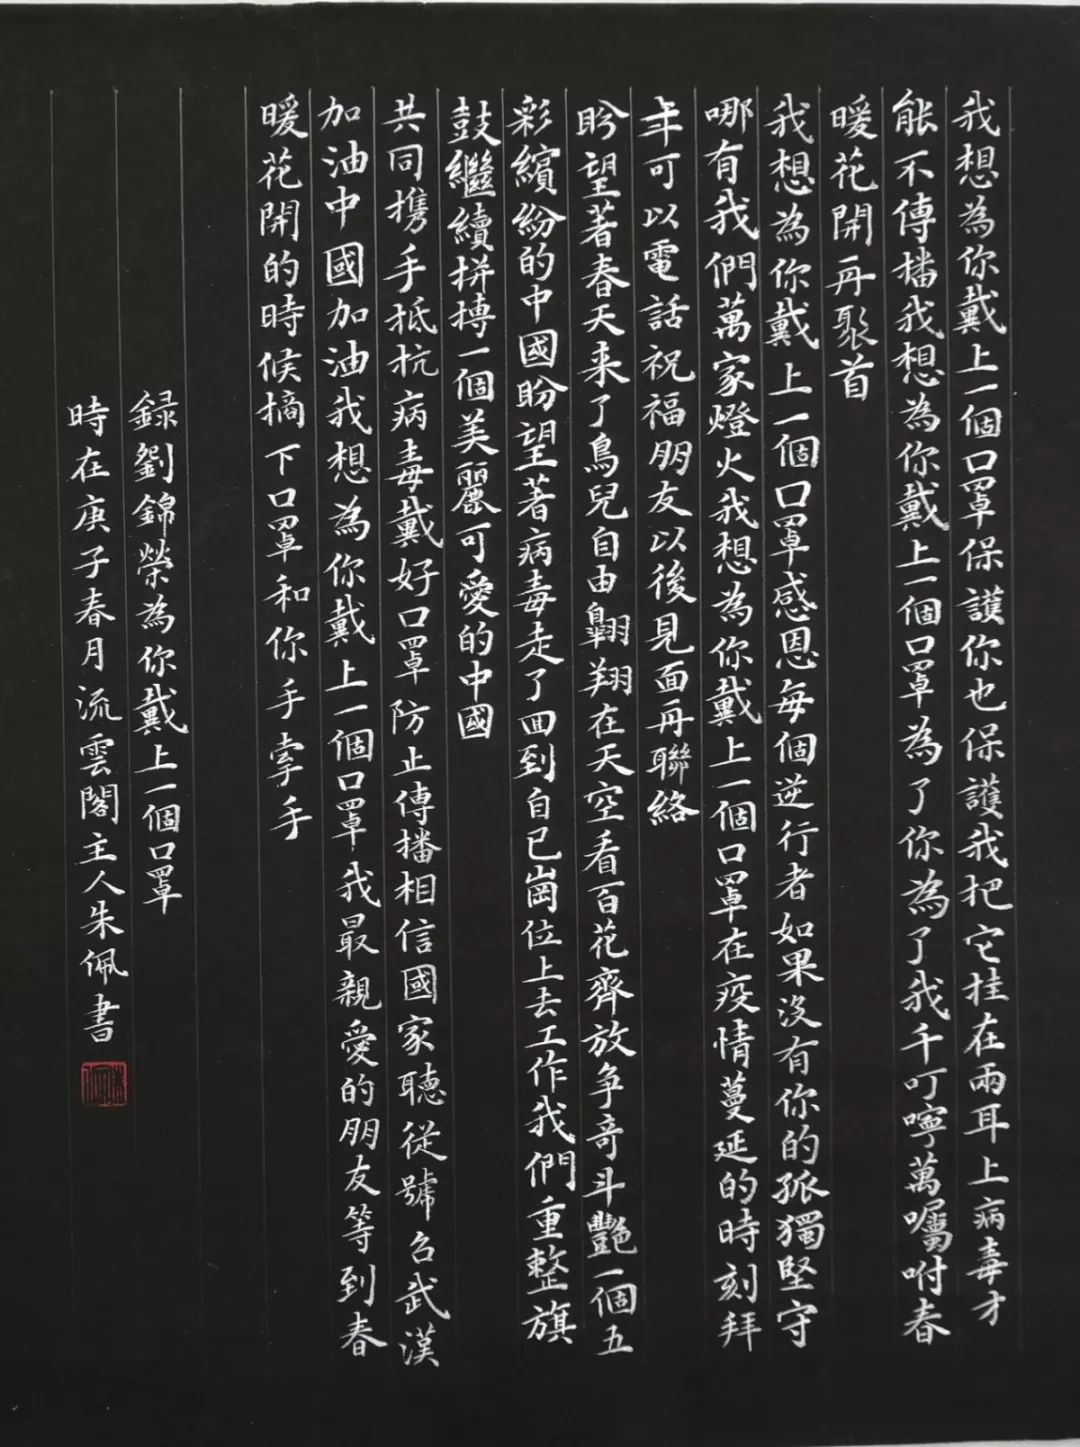 我想為你戴上一個口罩保護你也保護我把它挂在兩耳上病毒才
能不傳播我想為你戴上一個口罩為了你為了我千叮嚀萬囑咐春
暖花開再聚首
我想為你戴上一個口罩感恩每個逆行者如果沒有你的孤獨堅守
哪有我們萬家燈火我想為你戴上一個口罩在疫情蔓延的時刻拜
年可以電話祝福朋友以後見面再聯絡
盼望著春天来了鳥兒自由翱翔在天空看百花齊放争奇斗艷一個五
彩繽紛的中國盼望著病毒走了回到自己崗位上去工作我們重整旗
鼓繼續拼搏一個美麗可愛的中國
共同携手抵抗病毒戴好口罩防止傳播相信國家聽從號召武漢
加油中國加油我想為你戴上一個口罩我最親愛的朋友等到春
暖花開的時候摘下口罩和你手牽手
録劉錦榮為你戴上一個口罩
時在庚子春月流雲閣主人朱佩書